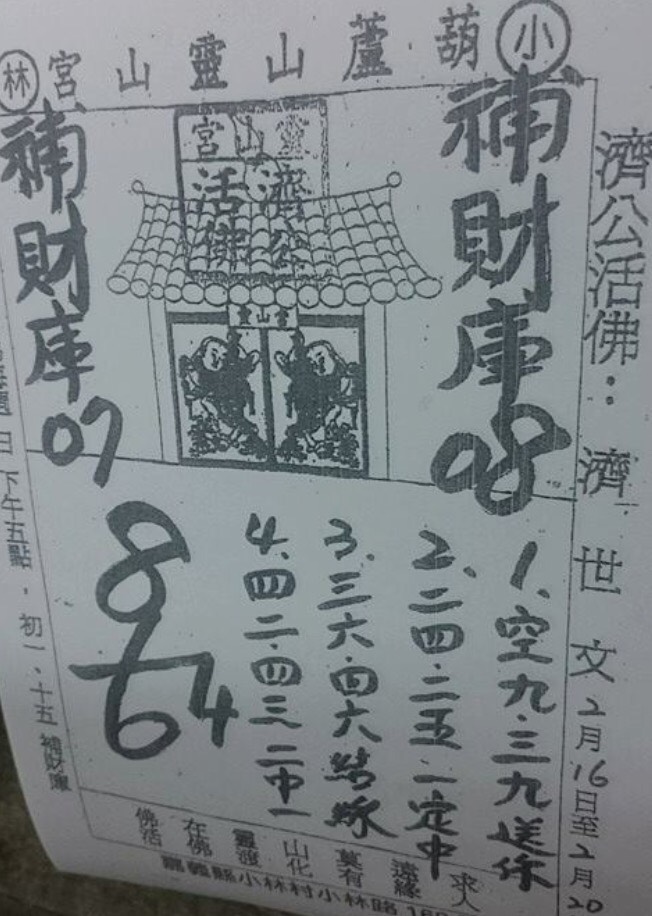 小 葫蘆山靈山宮 林
濟公活佛：濟世文 2月16日至2月20
補財庫08
靈山宮
濟公
活佛
靈山宮
補財庫07
1、空九·三九送你
2、二四·二五一定中
3、三六·四六結緣
4、四二·四三二中一
8
6 4
日 下午五點，初一、十五 補財庫
求人
遠緣
莫有
山化
靈渡
在佛
佛活
嘉義縣小林村小林路